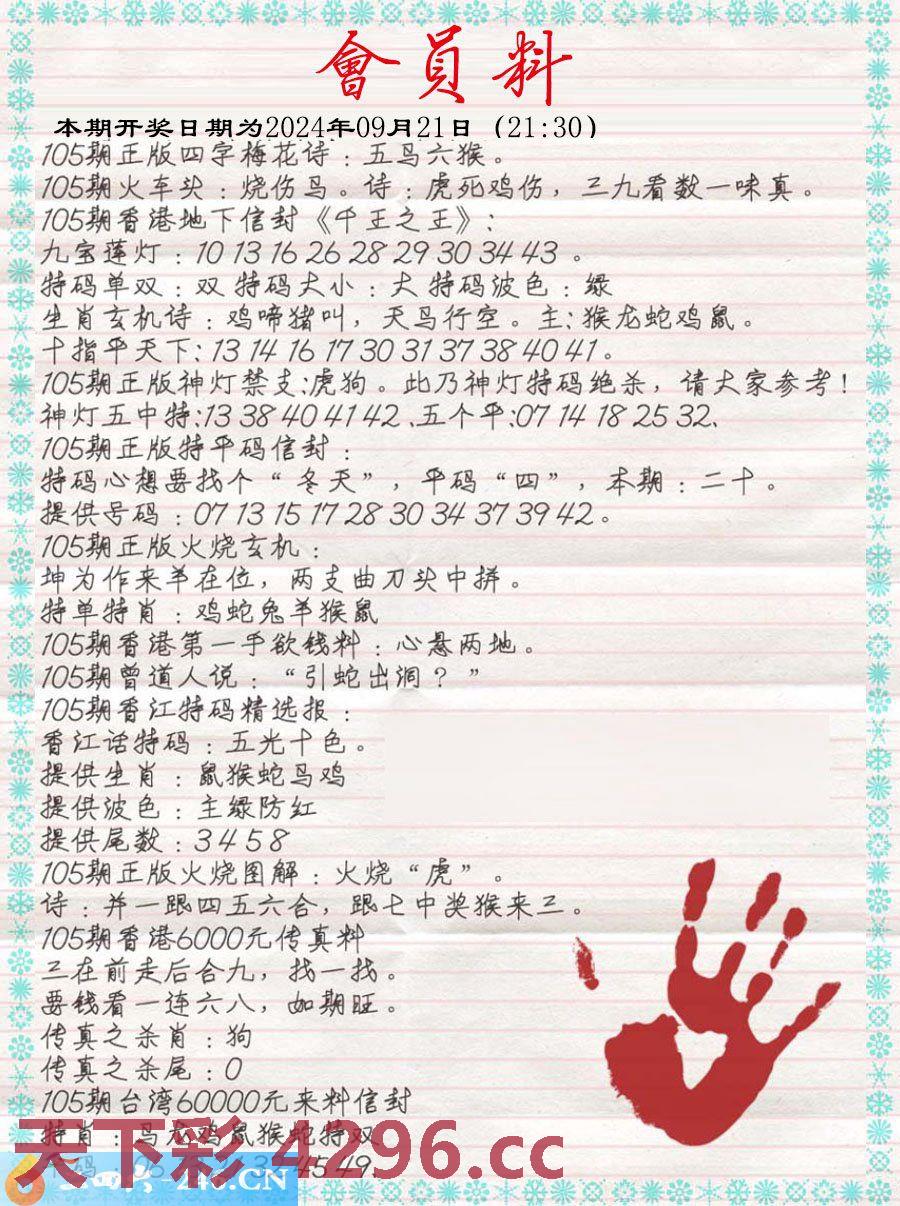 會員料
本期开奖日期为2024年09月21日（21:30）
105期正版四字梅花诗：五鸟六猴。
105期火车头：烧伤鸟。诗：虎死鸡伤，三九看数一味真。
105期香港地下信封《千王之王》：
九宝莲灯：10 13 16 26 28 29 30 34 43 。
特码单双：双 特码大小：大 特码波色：绿
生肖玄机诗：鸡啼猪叫，天鸟行空。主：猴龙蛇鸡鼠。
十指平天下：13 14 16 17 30 31 37 38 40 41。
105期正版神灯禁支：虎狗。此乃神灯特码绝杀，请大家参考！
神灯五中特：13 38 40 41 42 .五个平：07 14 18 25 32.
105期正版特平码信封：
特码心想要找个“冬天”，平码“四”，本期：二十。
提供号码：07 13 15 17 28 30 34 37 39 42。
105期正版火烧玄机：
坤为作来羊在位，两支曲刀头中拼。
特单特肖：鸡蛇兔羊猴鼠
105期香港第一手欲钱料：心悬两地。
105期曾道人说：“引蛇出洞？”
105期香江特码精选报：
香江话特码：五光十色。
提供生肖：鼠猴蛇马鸡
提供波色：主绿防红
提供尾数：3 4 5 8
105期正版火烧图解：火烧“虎”。
诗：并一跟四五六合，跟七中奖猴来三。
105期香港6000元传真料
三在前走后合九，找一找。
要钱看一连六八，如期旺。
传真之杀肖：狗
传真之杀尾：0
105期台湾60000元来料信封
特肖：马龙鸡鼠猴蛇特双
45 49.
天下彩.4296.cc
246.CN